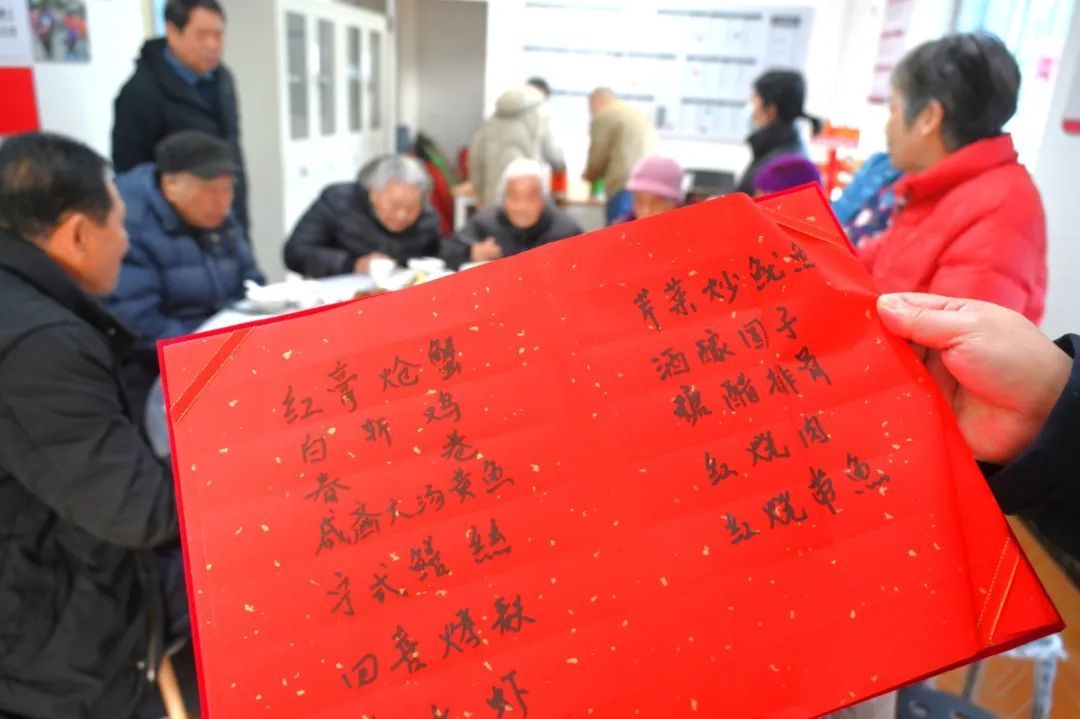 红膏炝蟹
白斩鸡
春卷
咸齑大汤黄鱼
宁式鳝丝
四喜烤麸
虾
芹菜炒鱿鱼
酒酿圆子
糖醋排骨
红烧肉
红烧带鱼